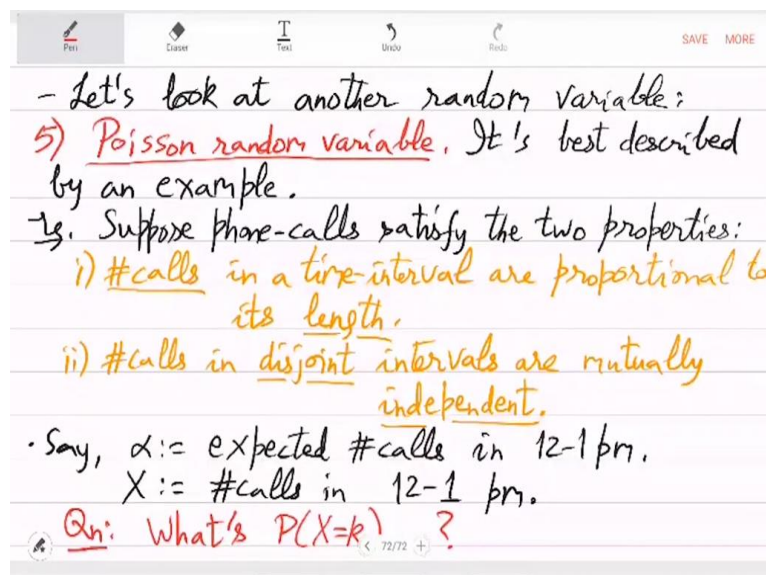 Pen Eraser Text Undo Redo SAVE MORE
- Let's look at another random variable:
5) Poisson random variable. It's best described
by an example.
Eg. Suppose phone-calls satisfy the two properties:
i) #calls in a time-interval are proportional to
its length.
ii) #calls in disjoint intervals are mutually
independent.
· Say, α := expected #calls in 12-1 pm.
X := #calls in 12-1 pm.
Qn: What's P(X=k) ?
< 72/72 +